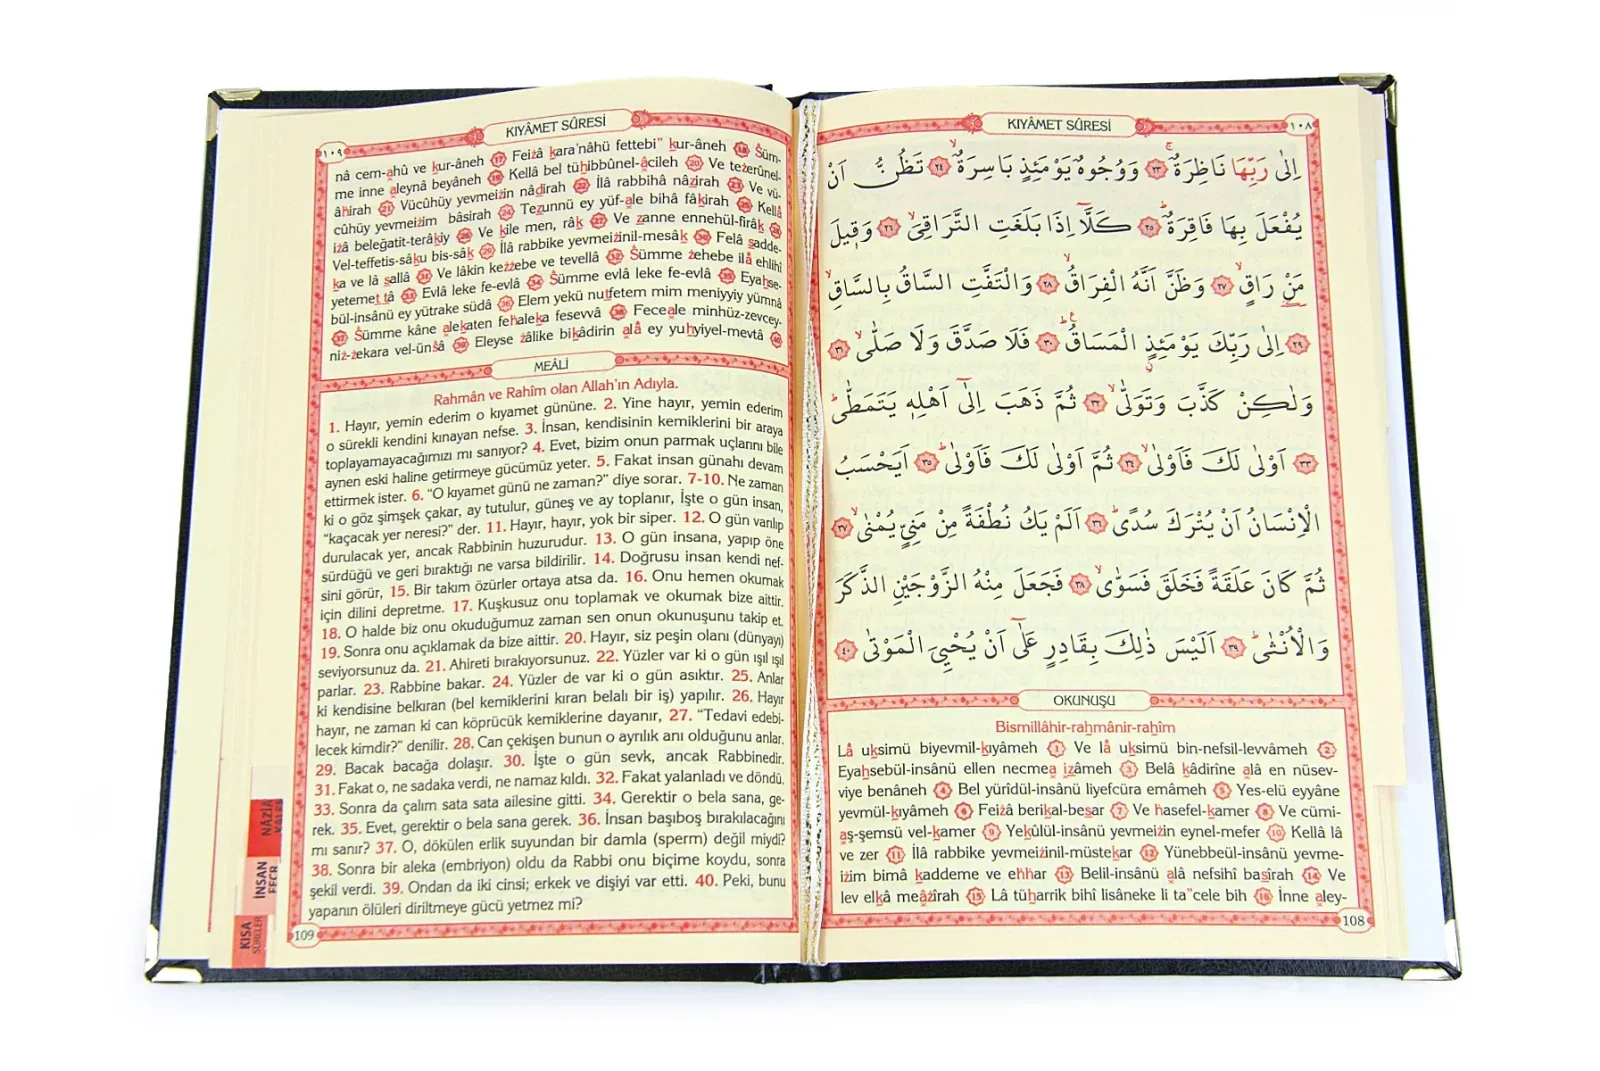 KIYÂMET SÛRESİ
١٠٨
اِلٰى رَبِّهَا نَاظِرَةٌۚ ٢٣ وَوُجُوهٌ يَوْمَئِذٍ بَاسِرَةٌۙ ٢٤ تَظُنُّ اَنْ
يُفْعَلَ بِهَا فَاقِرَةٌۜ ٢٥ كَلَّٓا اِذَا بَلَغَتِ التَّرَاقِيَۙ ٢٦ وَقِيلَ
مَنْ رَاقٍۙ ٢٧ وَظَنَّ اَنَّهُ الْفِرَاقُۙ ٢٨ وَالْتَفَّتِ السَّاقُ بِالسَّاقِۙ
٢٩ اِلٰى رَبِّكَ يَوْمَئِذٍ الْمَسَاقُۜ ٣٠ فَلَا صَدَّقَ وَلَا صَلّٰىۙ ٣١
وَلٰكِنْ كَذَّبَ وَتَوَلّٰىۙ ٣٢ ثُمَّ ذَهَبَ اِلٰٓى اَهْلِهٖ يَتَمَطّٰىۜ
٣٣ اَوْلٰى لَكَ فَاَوْلٰىۙ ٣٤ ثُمَّ اَوْلٰى لَكَ فَاَوْلٰىۜ ٣٥ اَيَحْسَبُ
الْاِنْسَانُ اَنْ يُتْرَكَ سُدًىۜ ٣٦ اَلَمْ يَكُ نُطْفَةً مِنْ مَنِيٍّ يُمْنٰىۙ ٣٧
ثُمَّ كَانَ عَلَقَةً فَخَلَقَ فَسَوّٰىۙ ٣٨ فَجَعَلَ مِنْهُ الزَّوْجَيْنِ الذَّكَرَ
وَالْاُنْثٰىۜ ٣٩ اَلَيْسَ ذٰلِكَ بِقَادِرٍ عَلٰٓى اَنْ يُحْيِيَ الْمَوْتٰى ٤٠
OKUNUŞU
Bismillâhir-rahmânir-rahîm
Lâ uksimü biyevmil-kıyâmeh 1 Ve lâ uksimü bin-nefsil-levvâmeh 2
Eyahsebül-insânü ellen necmea ızâmeh 3 Belâ kâdirîne alâ en nüsev-
viye benâneh 4 Bel yürîdül-insânü liyefcüra emâmeh 5 Yes-elü eyyâne
yevmül-kıyâmeh 6 Feizâ berikal-besar 7 Ve hasefel-kamer 8 Ve cümi-
aş-şemsü vel-kamer 9 Yekûlül-insânü yevmeizin eynel-mefer 10 Kellâ lâ
ve zer 11 İlâ rabbike yevmeizinil-müstekar 12 Yünebbeül-insânü yevme-
izim bimâ kaddeme ve ehhar 13 Belil-insânü alâ nefsihî basîrah 14 Ve
lev elkâ meâzîrah 15 Lâ tüharrik bihî lisâneke li ta"cele bih 16 İnne aley-
108
KIYÂMET SÛRESİ
١٠٩
nâ cem-ahû ve kur-âneh 17 Feizâ kara'nâhü fettebi" kur-âneh 18 Süm-
me inne aleynâ beyâneh 19 Kellâ bel tühibbûnel-âcileh 20 Ve tezerûnel-
âhirah 21 Vücûhüy yevmeizin nâdirah 22 İlâ rabbihâ nâzirah 23 Ve vü-
cûhüy yevmeizim bâsirah 24 Tezunnü ey yüf-ale bihâ fâkirah 25 Kellâ
izâ beleğatit-terâkiy 26 Ve kîle men, râk 27 Ve zanne ennehül-firâk 28
Vel-teffetis-sâku bis-sâk 29 İlâ rabbike yevmeizinil-mesâk 30 Felâ sadde-
ka ve lâ sallâ 31 Ve lâkin kezzebe ve tevellâ 32 Sümme zehebe ilâ ehlihî
yetemettâ 33 Evlâ leke fe-evlâ 34 Sümme evlâ leke fe-evlâ 35 Eyahse-
bül-insânü ey yütrake südâ 36 Elem yekü nutfetem mim meniyyiy yümnâ
37 Sümme kâne alekaten fehaleka fesevvâ 38 Feceale minhüz-zevcey-
niz-zekara vel-ünsâ 39 Eleyse zâlike bikâdirin alâ ey yuhyiyel-mevtâ 40
MEÂLİ
Rahmân ve Rahîm olan Allah'ın Adıyla.
1. Hayır, yemin ederim o kıyamet gününe. 2. Yine hayır, yemin ederim
o sürekli kendini kınayan nefse. 3. İnsan, kendisinin kemiklerini bir araya
toplayamayacağımızı mı sanıyor? 4. Evet, bizim onun parmak uçlarını bile
aynen eski haline getirmeye gücümüz yeter. 5. Fakat insan günahı devam
ettirmek ister. 6. "O kıyamet günü ne zaman?" diye sorar. 7-10. Ne zaman
ki o göz şimşek çakar, ay tutulur, güneş ve ay toplanır, İşte o gün insan,
"kaçacak yer neresi?" der. 11. Hayır, hayır, yok bir siper. 12. O gün varılıp
durulacak yer, ancak Rabbinin huzurudur. 13. O gün insana, yapıp öne
sürdüğü ve geri bıraktığı ne varsa bildirilir. 14. Doğrusu insan kendi nef-
sini görür, 15. Bir takım özürler ortaya atsa da. 16. Onu hemen okumak
için dilini depretme. 17. Kuşkusuz onu toplamak ve okumak bize aittir.
18. O halde biz onu okuduğumuz zaman sen onun okunuşunu takip et.
19. Sonra onu açıklamak da bize aittir. 20. Hayır, siz peşin olanı (dünyayı)
seviyorsunuz da. 21. Ahireti bırakıyorsunuz. 22. Yüzler var ki o gün ışıl ışıl
parlar. 23. Rabbine bakar. 24. Yüzler de var ki o gün asıktır. 25. Anlar
ki kendisine belkıran (bel kemiklerini kıran belalı bir iş) yapılır. 26. Hayır
hayır, ne zaman ki can köprücük kemiklerine dayanır, 27. "Tedavi edebi-
lecek kimdir?" denilir. 28. Can çekişen bunun o ayrılık anı olduğunu anlar.
29. Bacak bacağa dolaşır. 30. İşte o gün sevk, ancak Rabbinedir.
31. Fakat o, ne sadaka verdi, ne namaz kıldı. 32. Fakat yalanladı ve döndü.
33. Sonra da çalım sata sata ailesine gitti. 34. Gerektir o bela sana, ge-
rek. 35. Evet, gerektir o bela sana gerek. 36. İnsan başıboş bırakılacağını
mı sanır? 37. O, dökülen erlik suyundan bir damla (sperm) değil miydi?
38. Sonra bir aleka (embriyon) oldu da Rabbi onu biçime koydu, sonra
şekil verdi. 39. Ondan da iki cinsi; erkek ve dişiyi var etti. 40. Peki, bunu
yapanın ölüleri diriltmeye gücü yetmez mi?
109
İNSAN
KISA
SÛRELER